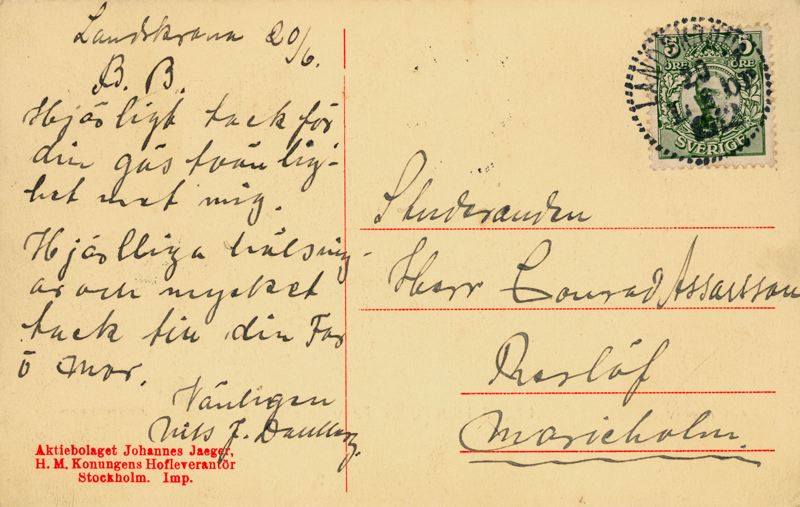 Landskrona 20/6.
B. B.
Hjärligt tack för
din gäs tvänlig-
het mot mig.
Hjärlliga hälsning-
ar och mycket
tack till din Far
o Mor.
Vänligen
Nils J.
Aktiebolaget Johannes Jaeger,
H. M. Konungens Hofleverantör
Stockholm. Imp.
LANDSKRONA
20
5 5
ÖRE ÖRE
SVERIGE
Studeranden
Herr Conrad Assarsson
Reslöf
Marieholm.